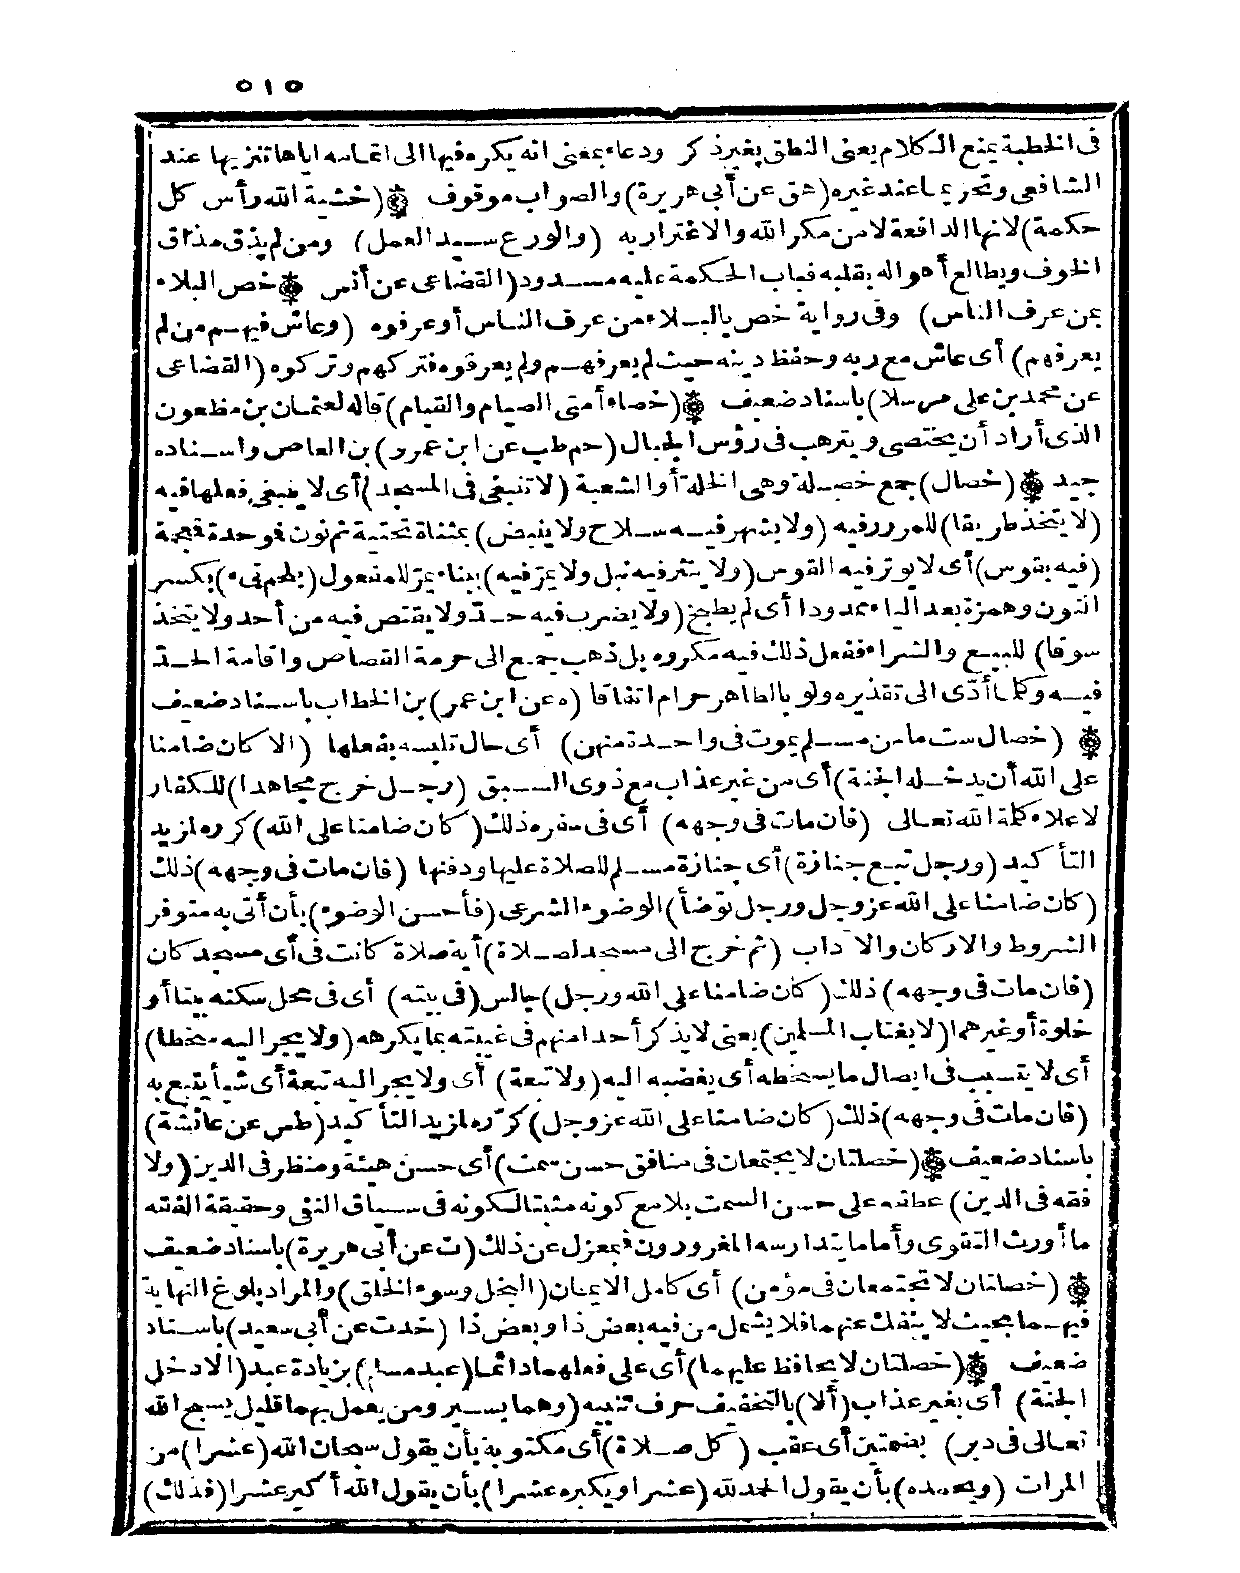 ٥١٥
فى الخطبة يمنع الكلام يعنى النطق بغير ذكر ودعاء بمعنى انه يكره فيها الى اتمامه اياها تنزيها عند
الشافعى وتحريما عند غيره (هق عن أبى هريرة) والصواب موقوف ۞ (خشية الله رأس كل
حكمة) لانها الدافعة لامن مكر الله والاغترار به (والورع سيد العمل) ومن لم يذق مذاق
الخوف ويطالع أهواله بقلبه فباب الحكمة عليه مسدود (القضاعى عن أنس ۞ خص البلاء
بمن عرف الناس) وفى رواية خص بالبلاء من عرف الناس أو عرفوه (وعاش فيهم من لم
يعرفهم) أى عاش مع ربه وحفظ دينه حيث لم يعرفهم ولم يعرفوه فتركهم وتركوه (القضاعى
عن محمد بن على مرسلا) باسناد ضعيف ۞ (خصاء أمتى الصيام والقيام) قاله لعثمان بن مظعون
الذى أراد أن يختصى ويترهب فى رؤس الجبال (حم طب عن ابن عمرو) بن العاص واسناده
جيد ۞ (خصال) جمع خصلة وهى الخلة أو الشعبة (لا تنبغى فى المسجد) أى لا ينبغى فعلها فيه
(لا يتخذ طريقا) للمرور فيه (ولا يشهر فيه سلاح ولا ينبض) بمثناة تحتية ثم نون فموحدة فمعجمة
(فيه بقوس) أى لا يوتر فيه القوس (ولا ينثر فيه نبل ولا يمر فيه) ببناء يمر للمفعول (بلحم نىء) بكسر
النون وهمزة بعد الياء ممدودا أى لم يطبخ (ولا يضرب فيه حد ولا يقتص فيه من أحد ولا يتخذ
سوقا) للبيع والشراء ففعل ذلك فيه مكروه بل ذهب جمع الى حرمة القصاص واقامة الحد
فيه وكل ما أدى الى تقذيره ولو بالطاهر حرام اتفاقا (ه عن ابن عمر) بن الخطاب باسناد ضعيف
۞ (خصال ست ما من مسلم يموت فى واحدة منهن) أى حال تلبسه بفعلها (الا كان ضامنا
على الله أن يدخله الجنة) أى من غير عذاب مع ذوى السبق (رجل خرج مجاهدا) للكفار
لاعلاء كلمة الله تعالى (فان مات فى وجهه) أى فى سفره ذلك (كان ضامنا على الله) كرره لمزيد
التأكيد (ورجل تبع جنازة) أى جنازة مسلم للصلاة عليها ودفنها (فان مات فى وجهه) ذلك
(كان ضامنا على الله عز وجل ورجل توضأ) الوضوء الشرعى (فأحسن الوضوء) بأن أتى به متوفر
الشروط والاركان والآداب (ثم خرج الى مسجد لصلاة) أية صلاة كانت فى أى مسجد كان
(فان مات فى وجهه) ذلك (كان ضامنا على الله ورجل) جالس (فى بيته) أى فى محل سكنه بيتا أو
خلوة أو غيرهما (لا يغتاب المسلمين) يعنى لا يذكر أحدا منهم فى غيبته بما يكرهه (ولا يجر اليه سخطا)
أى لا يتسبب فى ايصال ما يسخطه أى يغضبه اليه (ولا تبعة) أى ولا يجر اليه تبعة أى شيأ يتبع به
(فان مات فى وجهه) ذلك (كان ضامنا على الله عز وجل) كرّره لمزيد التأكيد (طس عن عائشة)
باسناد ضعيف ۞ (خصلتان لا يجتمعان فى منافق حسن سمت) أى حسن هيئة ومنظر فى الدين (ولا
فقه فى الدين) عطفه على حسن السمت بلا مع كونه مثبتا لكونه فى سياق النفى وحقيقة الفقه
ما أورث التقوى وأما ما يتدارسه المغرورون فبمعزل عن ذلك (ت عن أبى هريرة) باسناد ضعيف
۞ (خصلتان لا تجتمعان فى مؤمن) أى كامل الايمان (البخل وسوء الخلق) والمراد بلوغ النهاية
فيهما بحيث لا ينفك عنهما فلا يشمل من فيه بعض ذا وبعض ذا (خدت عن أبى سعيد) باسناد
ضعيف ۞ (خصلتان لا يحافظ عليهما) أى على فعلهما دائما (عبد مسلم) بزيادة عبد (الا دخل
الجنة) أى بغير عذاب (ألا) بالتخفيف حرف تنبيه (وهما يسير ومن يعمل بهما قليل يسبح الله
تعالى فى دبر) بضمتين أى عقب (كل صلاة) أى مكتوبة بأن يقول سبحان الله (عشرا) من
المرات (ويحمده) بأن يقول الحمد لله (عشرا ويكبره عشرا) بأن يقول الله أكبر عشرا (فذلك)